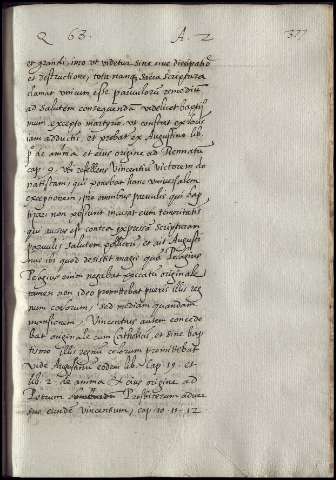 Q 68. A. 2 377
et grandi, imo ut videtur sine sive dissipatione
et destructione, tota namque sacra scriptura
clamat unicum esse parvulorum remedium
ad salutem consequendam videlicet baptis
mum, excepto martyrio, ut constat ex lo
iam adductis, et probat ex Augustino lib.
de anima et eius origine ad
cap. 9. ubi Vincentium Victorem do
natistam, qui ponebat hanc universalem
exceptionem, pro omnibus parvulis qui bap
tizari non possunt eum temeritatis
qui ausus est contra expressam scripturam
parvulis salutem polliceri et ait Augusti
nus ibi quod desistit magis quam Pelagius
Pelagius enim negabat peccatum originale
tamen non ideo promittebat pueris illis reg
num caelorum, sed mediam quandam
mansionem, Vincentius autem concede
bat originale cum catholicis, et sine bap
tismo illis regnum caelorum promittebat
vide Augustinum eodem lib. cap. 19. et
lib. 2. de anima et eius origine ad
Petrum Presbiterum adver
sus eundem Vincentium, cap. 10. 11. 12